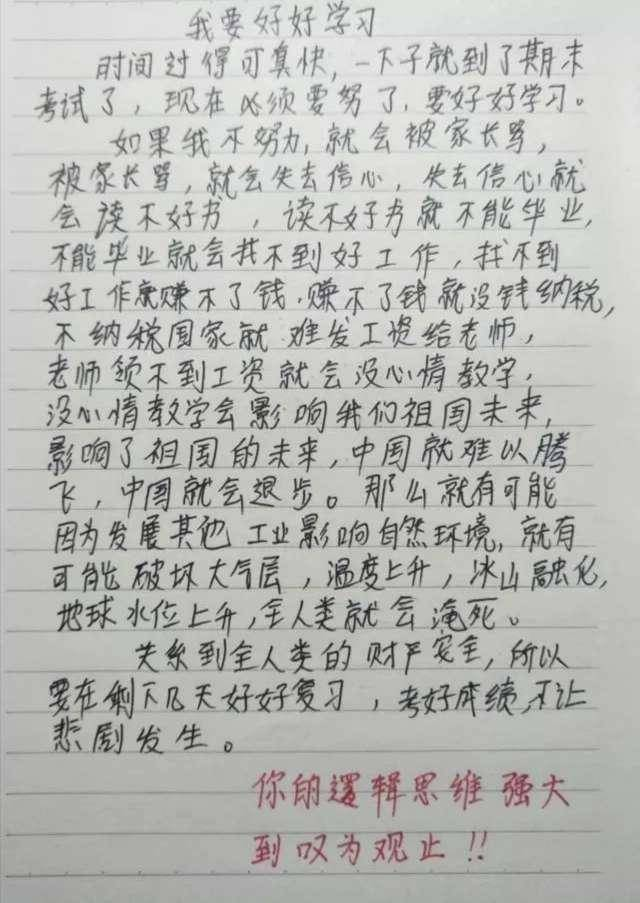 我要好好学习
时间过得可真快，一下子就到了期末
考试了，现在必须要努了，要好好学习。
如果我不努力，就会被家长骂，
被家长骂，就会失去信心，失去信心就
会读不好书，读不好书就不能毕业，
不能毕业就会找不到好工作，找不到
好工作就赚不了钱，赚不了钱就没钱纳税，
不纳税国家就难发工资给老师，
老师领不到工资就会没心情教学，
没心情教学会影响我们祖国未来，
影响了祖国的未来，中国就难以腾
飞，中国就会退步。那么就有可能
因为发展其他工业影响自然环境，就有
可能破坏大气层，温度上升，冰山融化，
地球水位上升，全人类就会淹死。
关系到全人类的财产安全，所以
要在剩下几天好好复习，考好成绩，不让
悲剧发生。
你的逻辑思维强大
到叹为观止！！